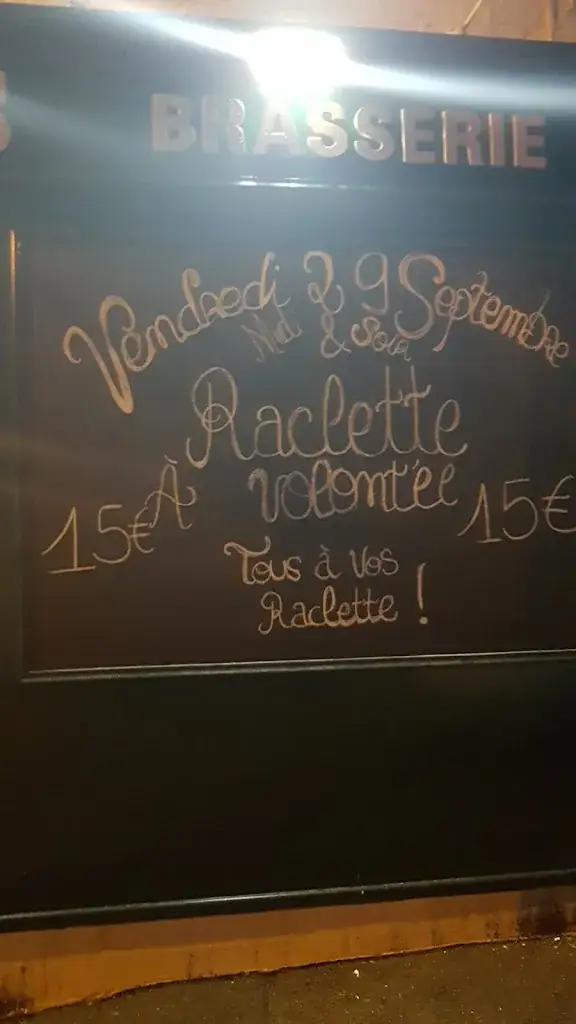 BRASSERIE
Vendredi 29 Septembre
Midi & Soir
Raclette
À volont'ée
15€ 15€
Tous à vos
Raclette !